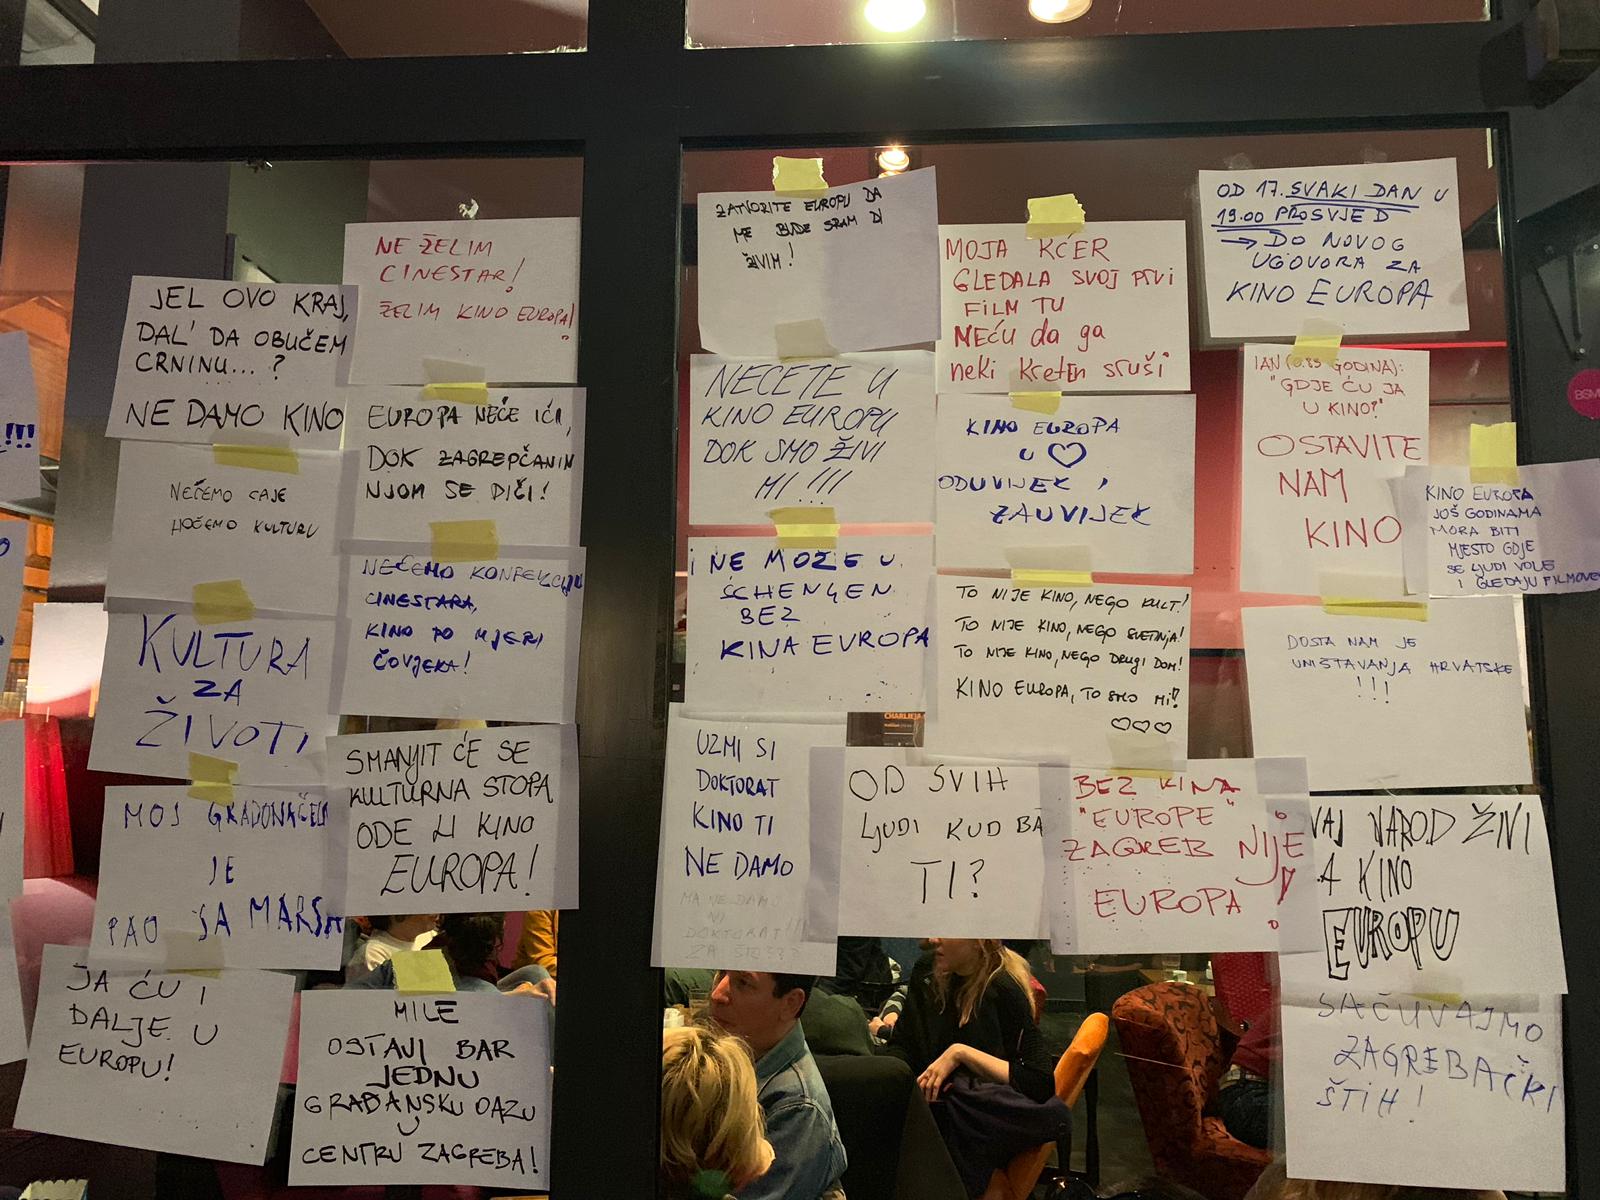 !!!
JEL OVO KRAJ,
DAL' DA OBUČEM
CRNINU... ?
NE DAMO KINO
NEĆEMO CAJE
HOĆEMO KULTURU
KULTURA
ZA
ŽIVOT!
MOJ GRADONAČEL
JE
PAO SA MARSA
JA ĆU I
DALJE U
EUROPU!
NE ŽELIM
CINESTAR!
ŽELIM KINO EUROPA!
EUROPA NEĆE IĆI,
DOK ZAGREPČANIN
NJOM SE DIČI!
NEĆEMO KONFEKCIJU
CINESTARA,
KINO PO MJERI
ČOVJEKA!
SMANJIT ĆE SE
KULTURNA STOPA
ODE LI KINO
EUROPA!
MILE
OSTAVI BAR
JEDNU
GRAĐANSKU OAZU
U
CENTRU ZAGREBA!
ZATVORITE EUROPU DA
ME BUDE SRAM DI
ŽIVIM!
NEĆETE U
KINO EUROPU
DOK SMO ŽIVI
MI!!!
I NE MOŽE U
SCHENGEN
BEZ
KINA EUROPA
UZMI SI
DOKTORAT
KINO TI
NE DAMO
MA NE DAMO
NI
DOKTORAT!!!
ZA ŠTO??
MOJA KĆER
GLEDALA SVOJ PRVI
FILM TU
NEĆU da ga
neki kreten sruši
KINO EUROPA
U ♡
ODUVIJEK,
ZAUVIJEK
TO NIJE KINO, NEGO KULT!
TO NIJE KINO, NEGO SVETINJA!
TO NIJE KINO, NEGO DRUGI DOM!
KINO EUROPA, TO SMO MI!!
♡♡♡
OD SVIH
LJUDI KUD BA
TI?
BEZ KINA
"EUROPE"
ZAGREB NIJE
EUROPA!
OD 17. SVAKI DAN U
19.00 PROSVJED
→ DO NOVOG
UGOVORA ZA
KINO EUROPA
IAN (0.83 GODINA):
"GDJE ĆU JA
U KINO?"
OSTAVITE
NAM
KINO
KINO EUROPA
JOŠ GODINAMA
MORA BITI
MJESTO GDJE
SE LJUDI VOLE
I GLEDAJU FILMOVE
DOSTA NAM JE
UNIŠTAVANJA HRVATSKE
!!!
VAJ NAROD ŽIVI
A KINO
EUROPU
SAČUVAJMO
ZAGREBAČKI
ŠTIH!
CHARLIEJA